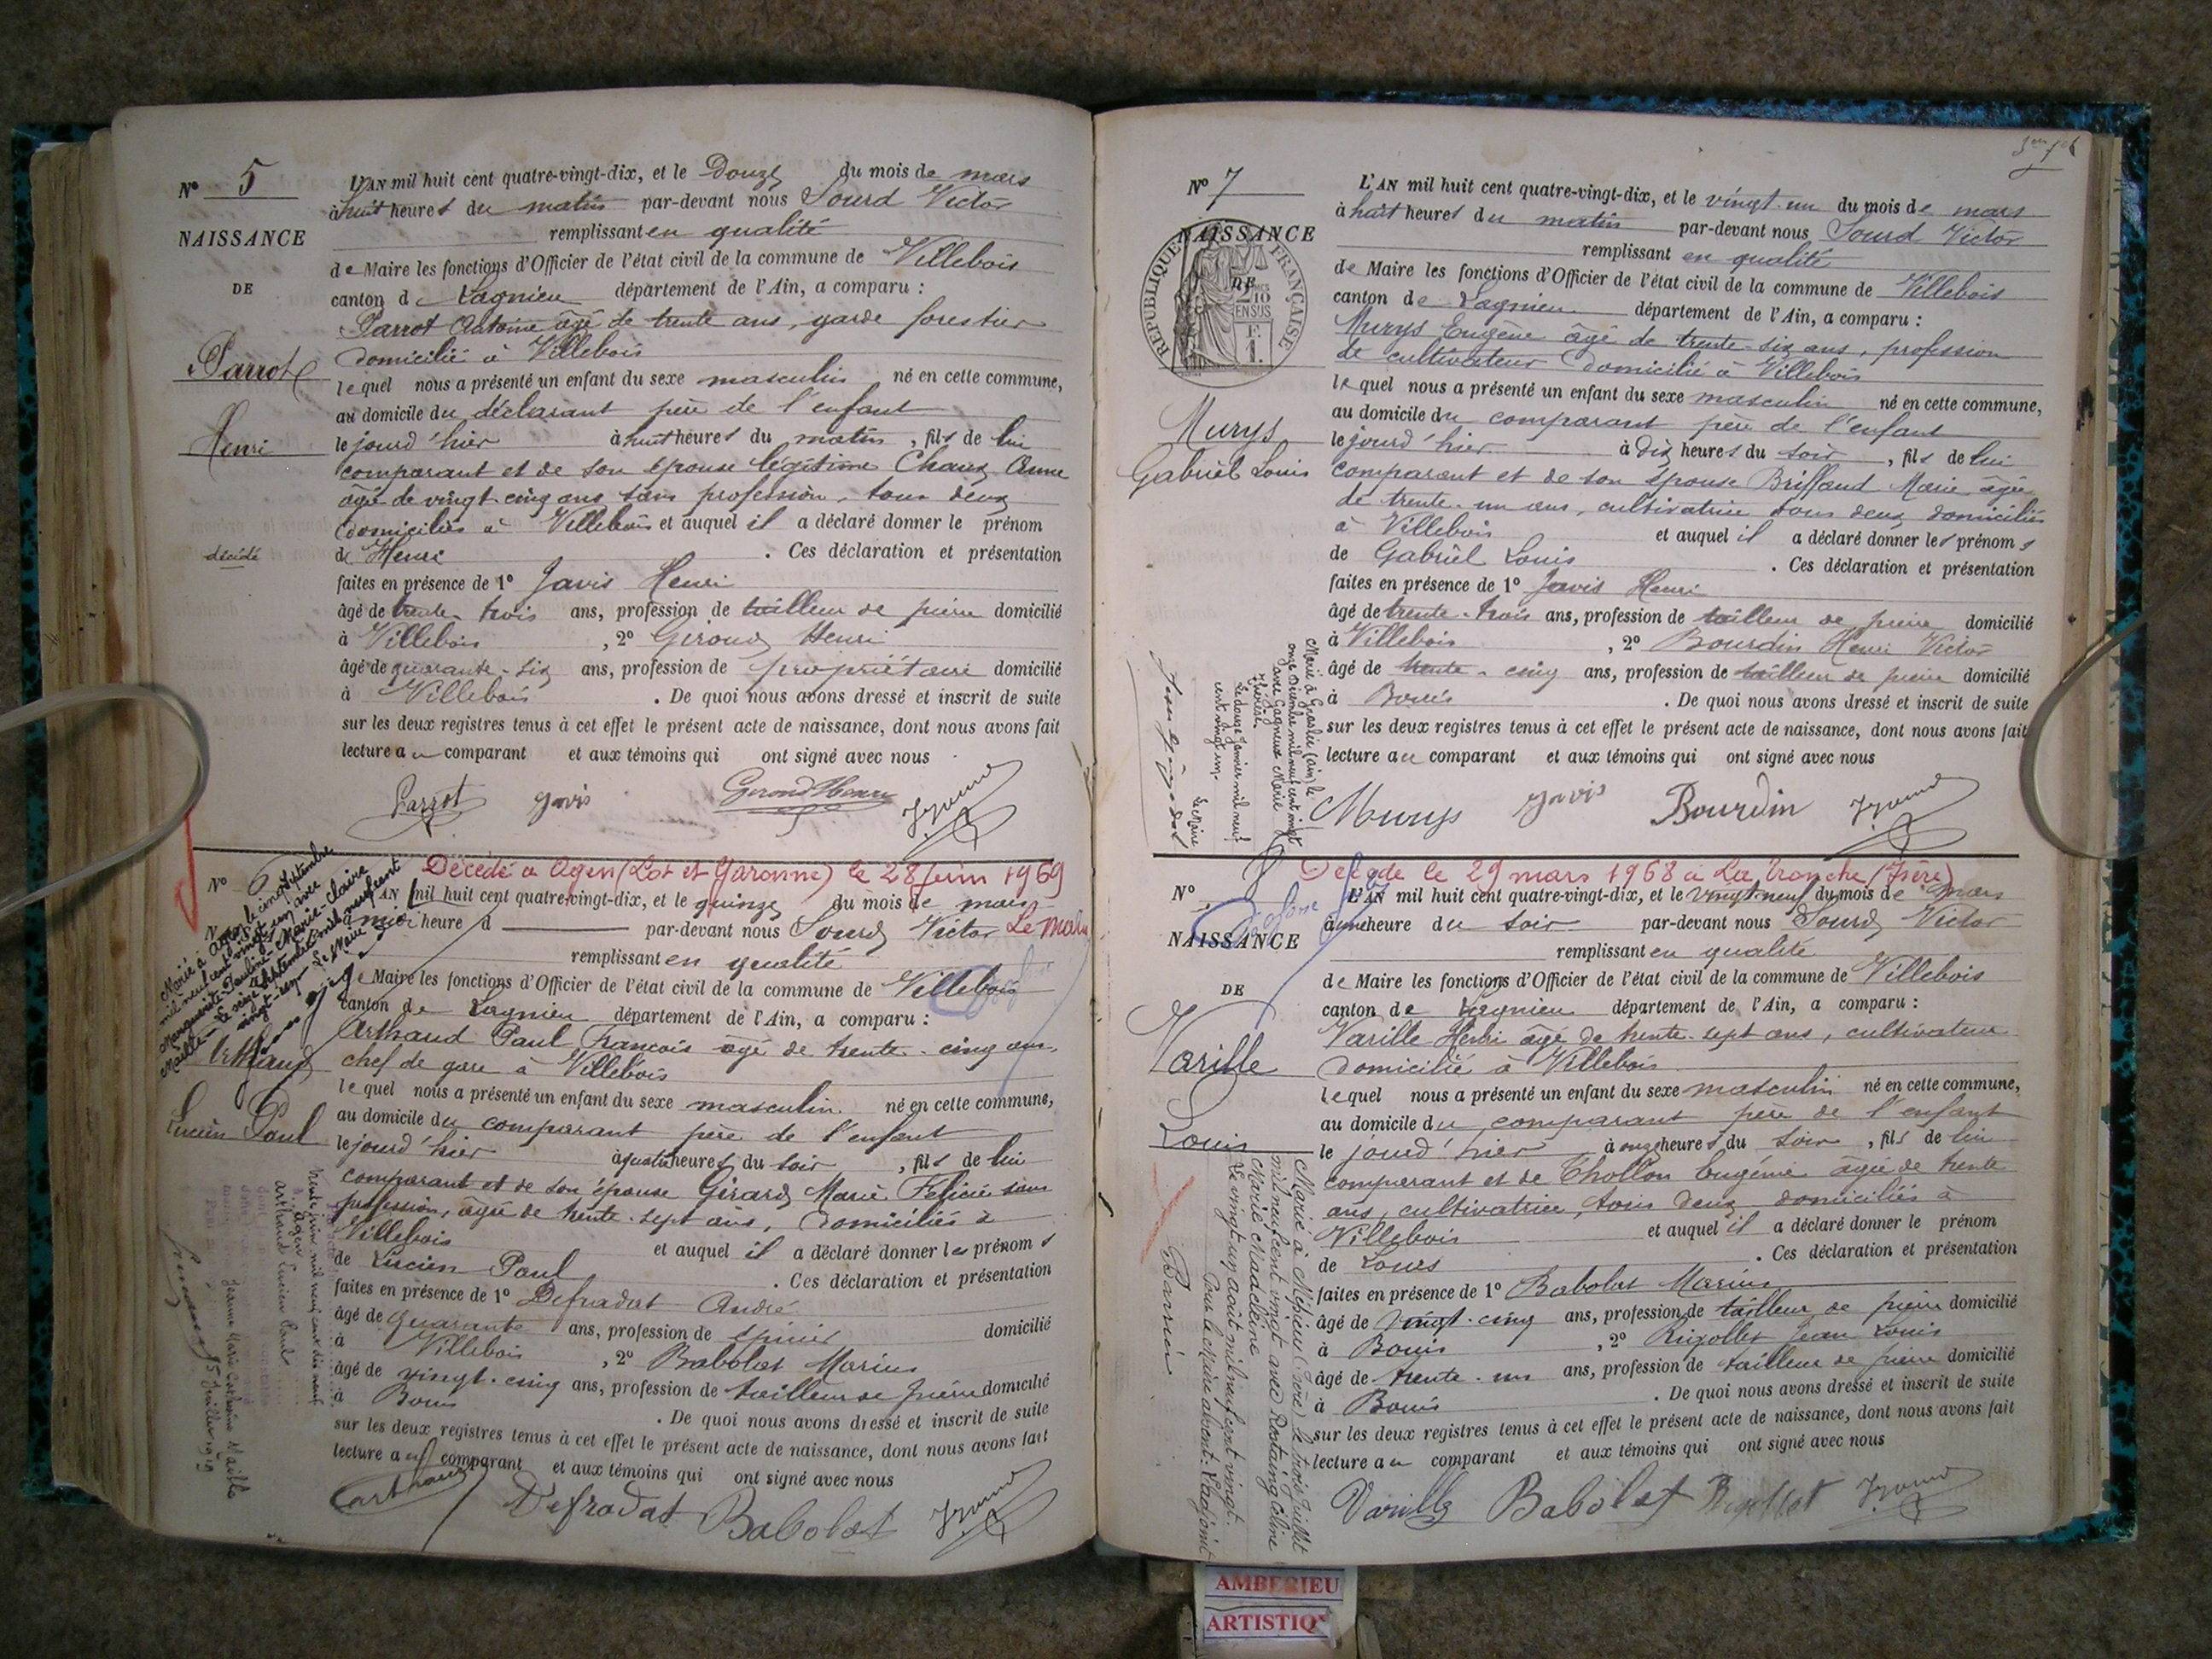 N° 5
NAISSANCE
DE
Parrot
Henri
décédé
L'AN mil huit cent quatre-vingt-dix, et le Douze du mois de mars
à huit heures du matin par-devant nous Sourd Victor
remplissant en qualité
de Maire les fonctions d'Officier de l'état civil de la commune de Villebois
canton de Lagnieu département de l'Ain, a comparu :
Parrot Antoine âgé de trente ans, garde forestier
domicilié à Villebois
lequel nous a présenté un enfant du sexe masculin né en cette commune,
au domicile du déclarant père de l'enfant
le jourd'hier à huit heures du matin, fils de lui
comparant et de son épouse légitime Chaux Anne
âgée de vingt-cinq ans sans profession, tous deux
domiciliés à Villebois et auquel il a déclaré donner le prénom
de Henri . Ces déclaration et présentation
faites en présence de 1° Javis Henri
âgé de trente-trois ans, profession de tailleur de pierre domicilié
à Villebois , 2° Giroud Henri
âgé de quarante-six ans, profession de propriétaire domicilié
à Villebois . De quoi nous avons dressé et inscrit de suite
sur les deux registres tenus à cet effet le présent acte de naissance, dont nous avons fait
lecture au comparant et aux témoins qui ont signé avec nous
Parrot Javis Giroud Henri
Décédé à Agen (Lot et Garonne) le 28 juin 1969
N° 6
Marié à Agen le cinq septembre
mil neuf cent vingt-un avec
Marguerite-Pauline-Marie-Claire
Le seize septembre mil neuf cent
vingt-un Le Maire
Arthaud
Lucien Paul
L'AN mil huit cent quatre-vingt-dix, et le quinze du mois de mars
à midi heure d par-devant nous Sourd Victor Le Maire
remplissant en qualité
de Maire les fonctions d'Officier de l'état civil de la commune de Villebois
canton de Lagnieu département de l'Ain, a comparu :
Arthaud Paul François âgé de trente-cinq ans,
chef de gare à Villebois
lequel nous a présenté un enfant du sexe masculin né en cette commune,
au domicile du comparant père de l'enfant
le jourd'hier à quatre heures du soir, fils de lui
comparant et de son épouse Girard Marie Félicie sans
profession, âgée de trente-sept ans, domiciliés à
Villebois et auquel il a déclaré donner les prénoms
de Lucien Paul . Ces déclaration et présentation
faites en présence de 1° Defradat André
âgé de quarante ans, profession de épicier domicilié
à Villebois , 2° Babolat Marius
âgé de vingt-cinq ans, profession de tailleur de pierre domicilié
à Bouis . De quoi nous avons dressé et inscrit de suite
sur les deux registres tenus à cet effet le présent acte de naissance, dont nous avons fait
lecture au comparant et aux témoins qui ont signé avec nous
trente juin mil neuf cent dix neuf
à Agen
Arthaud Lucien Paul
Jeanne Marie
15 juillet 1919
Arthaud Defradat Babolat
N° 7
NAISSANCE
DE
RÉPUBLIQUE FRANÇAISE
Murys
Gabriel Louis
L'AN mil huit cent quatre-vingt-dix, et le vingt-un du mois de mars
à huit heures du matin par-devant nous Sourd Victor
remplissant en qualité
de Maire les fonctions d'Officier de l'état civil de la commune de Villebois
canton de Lagnieu département de l'Ain, a comparu :
Murys Eugène âgé de trente-six ans, profession
de cultivateur domicilié à Villebois
lequel nous a présenté un enfant du sexe masculin né en cette commune,
au domicile du comparant père de l'enfant
le jourd'hier à dix heures du soir, fils de lui
comparant et de son épouse Brillaud Marie âgée
de trente-un ans, cultivatrice tous deux domiciliés
à Villebois et auquel il a déclaré donner les prénoms
de Gabriel Louis . Ces déclaration et présentation
faites en présence de 1° Javis Henri
âgé de trente-trois ans, profession de tailleur de pierre domicilié
à Villebois , 2° Bourdin Henri Victor
âgé de trente-cinq ans, profession de tailleur de pierre domicilié
à Bouis . De quoi nous avons dressé et inscrit de suite
sur les deux registres tenus à cet effet le présent acte de naissance, dont nous avons fait
lecture au comparant et aux témoins qui ont signé avec nous
Marié à Groslée (Ain) le
onze Décembre mil neuf cent vingt
avec Gagneux Marie
Thérèse.
Le douze Janvier mil neuf
cent vingt-un.
Le Maire
Murys Javis Bourdin
Décédé le 29 mars 1968 à La Tronche (Isère)
N° 8
NAISSANCE
DE
Varille
Louis
L'AN mil huit cent quatre-vingt-dix, et le vingt-neuf du mois de mars
à une heure du soir par-devant nous Sourd Victor
remplissant en qualité
de Maire les fonctions d'Officier de l'état civil de la commune de Villebois
canton de Lagnieu département de l'Ain, a comparu :
Varille Henri âgé de trente-sept ans, cultivateur
domicilié à Villebois
lequel nous a présenté un enfant du sexe masculin né en cette commune,
au domicile du comparant père de l'enfant
le jourd'hier à onze heures du soir, fils de lui
comparant et de Thollon Eugénie âgée de trente
ans, cultivatrice, tous deux domiciliés à
Villebois et auquel il a déclaré donner le prénom
de Louis . Ces déclaration et présentation
faites en présence de 1° Babolat Marius
âgé de vingt-cinq ans, profession de tailleur de pierre domicilié
à Bouis , 2° Rigollet Jean Louis
âgé de trente-un ans, profession de tailleur de pierre domicilié
à Bouis . De quoi nous avons dressé et inscrit de suite
sur les deux registres tenus à cet effet le présent acte de naissance, dont nous avons fait
lecture au comparant et aux témoins qui ont signé avec nous
Marié à Mépieu (Isère) le trois Juillet
mil neuf cent vingt avec Rostaing Céline
Marie Madeleine
Le vingt un août mil neuf cent vingt.
Pour le Maire absent: l'adjoint
Barrier
Varille Babolat Rigollet
AMBERIEU
ARTISTIQ